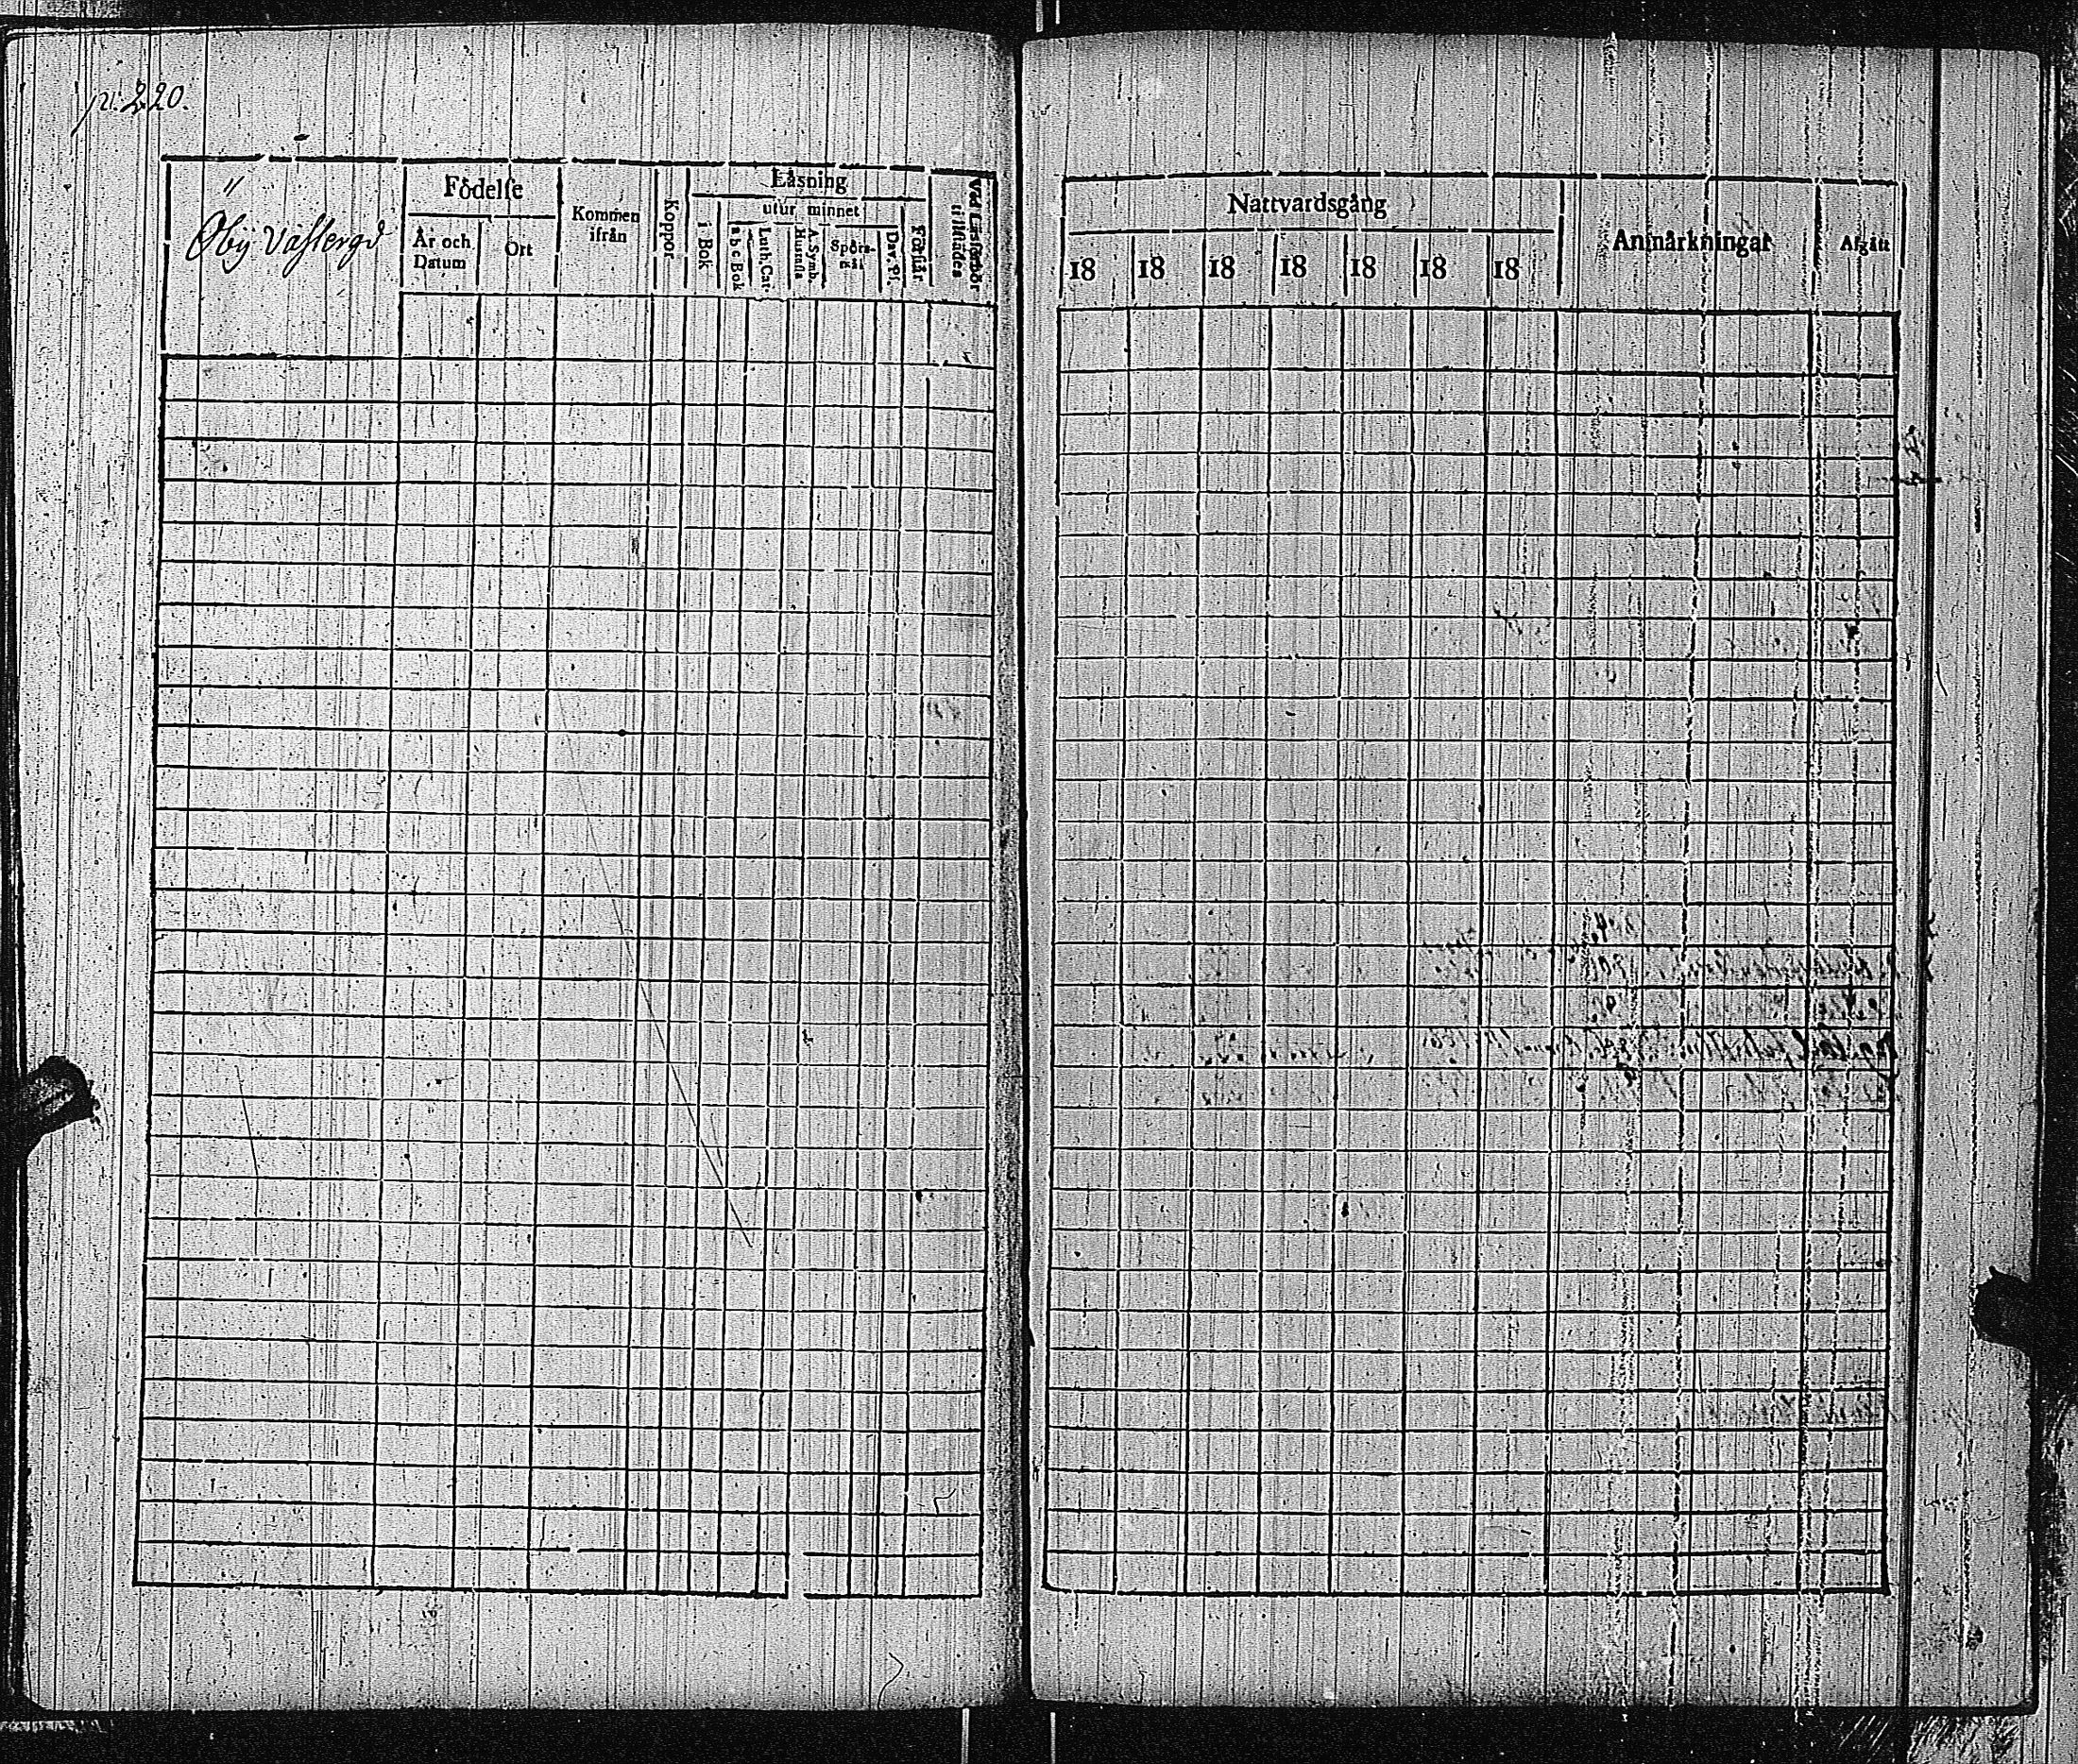 p. 220.
"
Öbÿ Västergd
Födelse
År och
Datum
Ort
Kommen
ifrån
Koppor
Läsning
i Bok
utur minnet
a b c Bok
Luth. Cat.
Hustafla
A. Symb.
Spörs-
mål
Dav. Ps.
Förstår
Vid Läsförhör
tillstädes
Nattvardsgång
18 18 18 18 18 18 18
Anmärkningar
Afgått